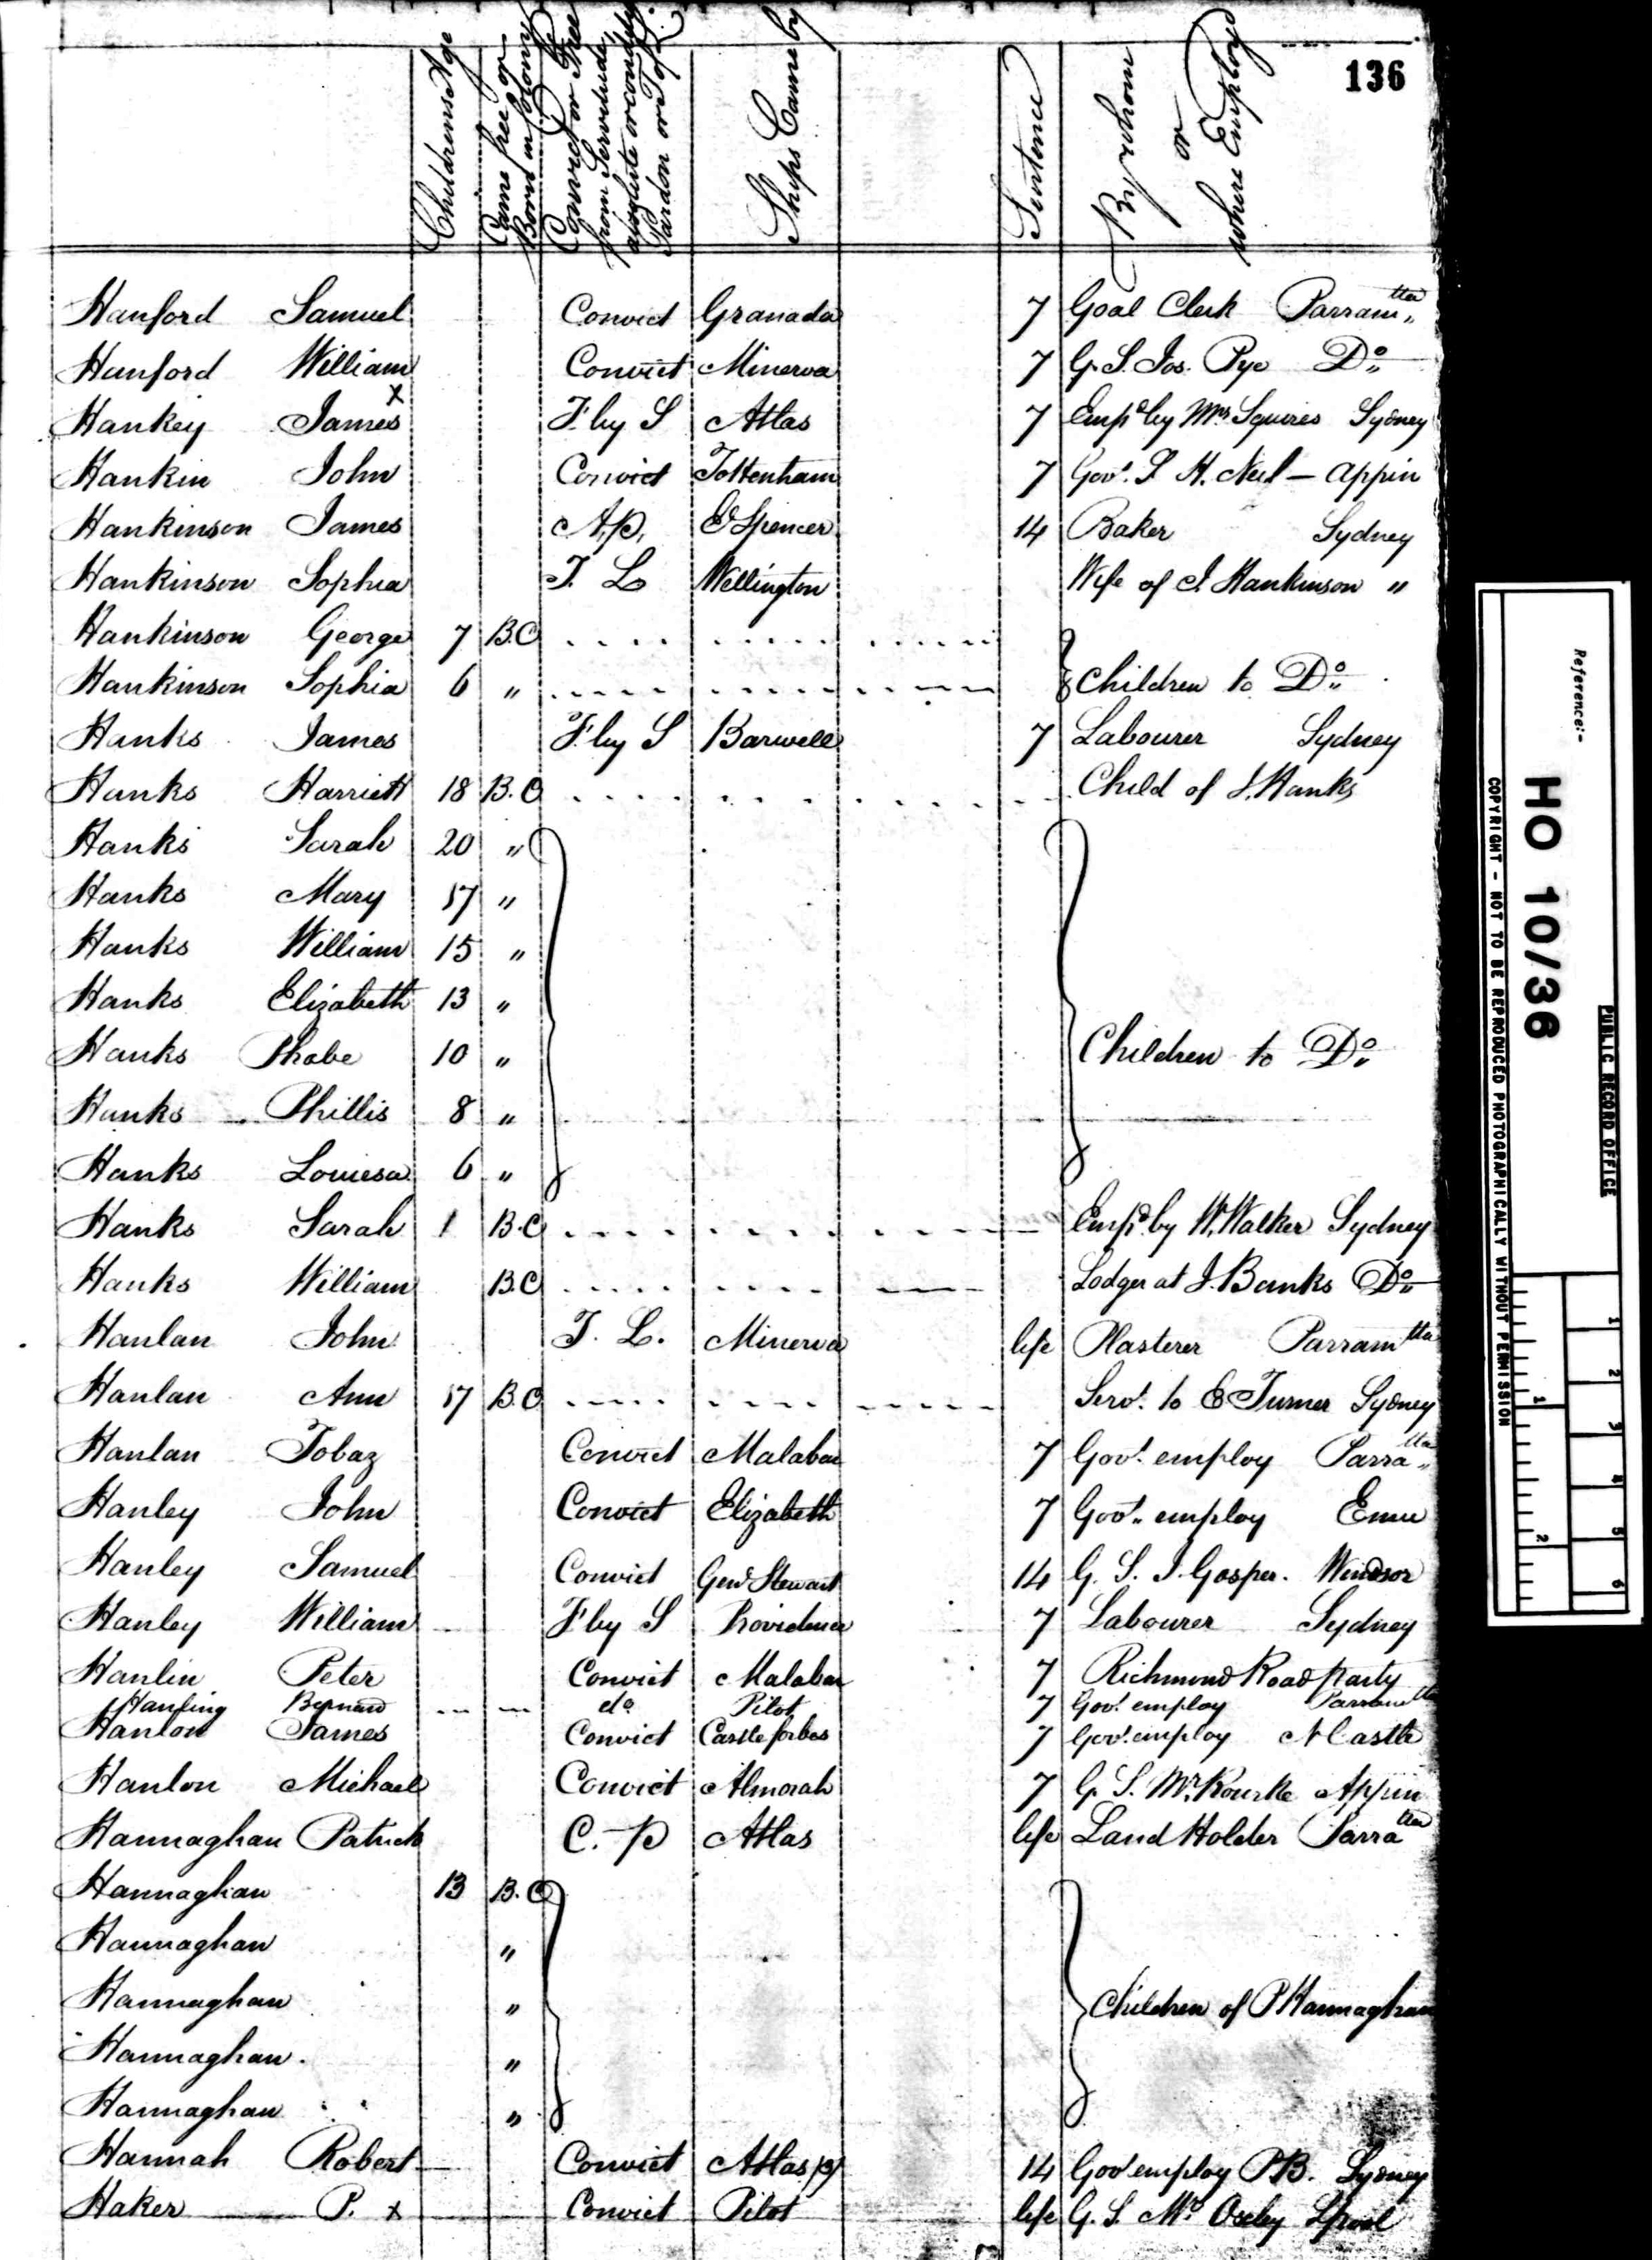 136
Childrens Age
Came free or Born in Colony
Convict or Free from Servitude, absolute or conditl. Pardon or T. of L.
Ships Came by
Sentence
By whom or where Employd
Hanford Samuel Convict Granada 7 Goal Clerk Parramtta
Hanford William Convict Minerva 7 G. S. Jos. Pye Do
Hankey James x F by S Atlas 7 Empd by Mrs Squires Sydney
Hankin John Convict Tottenham 7 Govt. S H. Neil - Appin
Hankinson James A.p. E Spencer 14 Baker Sydney
Hankinson Sophia T. L Wellington Wife of J Hankinson "
Hankinson George 7 B.C
Hankinson Sophia 6 " Children to Do
Hanks James F by S Barwell 7 Labourer Sydney
Hanks Harriett 18 B.C Child of J. Hanks
Hanks Sarah 20 "
Hanks Mary 17 "
Hanks William 15 "
Hanks Elizabeth 13 "
Hanks Phabe 10 " Children to Do
Hanks Phillis 8 "
Hanks Louiesa 6 "
Hanks Sarah 1 B.C Empd by W. Walker Sydney
Hanks William B.C Lodger at J. Banks Do
Hanlan John T. L. Minerva life Plasterer Parramtta
Hanlan Ann 17 B.C Servt. to E Turner Sydney
Hanlan Tobaz Convict Malabar 7 Govt. employ Parratta
Hanley John Convict Elizabeth 7 Govt. employ Emu
Hanley Samuel Convict Genl Stewart 14 G. S. J. Gosper. Windsor
Hanley William F by S Providence 7 Labourer Sydney
Hanlin Peter Convict Malabar 7 Richmond Road party
Hanling Bernard do Pilot 7 Govt. employ Parramtta
Hanlon James Convict Castle forbes 7 Govt. employ N Castle
Hanlon Michael Convict Almorah 7 G. S. Mr. Rourke Appin
Hannaghan Patrick C. P Atlas life Land Holder Parratta
Hannaghan 13 B.C
Hannaghan "
Hannaghan " Children of P Hannaghan
Hannaghan "
Hannaghan "
Hannah Robert Convict Atlas 14 Govt employ P.B. Sydney
Haker P. x Convict Pilot life G. S. Mr Oxley Lpool
Reference:-
HO 10/36
PUBLIC RECORD OFFICE
COPYRIGHT - NOT TO BE REPRODUCED PHOTOGRAPHICALLY WITHOUT PERMISSION
1 2 3 4 5 6
1 2